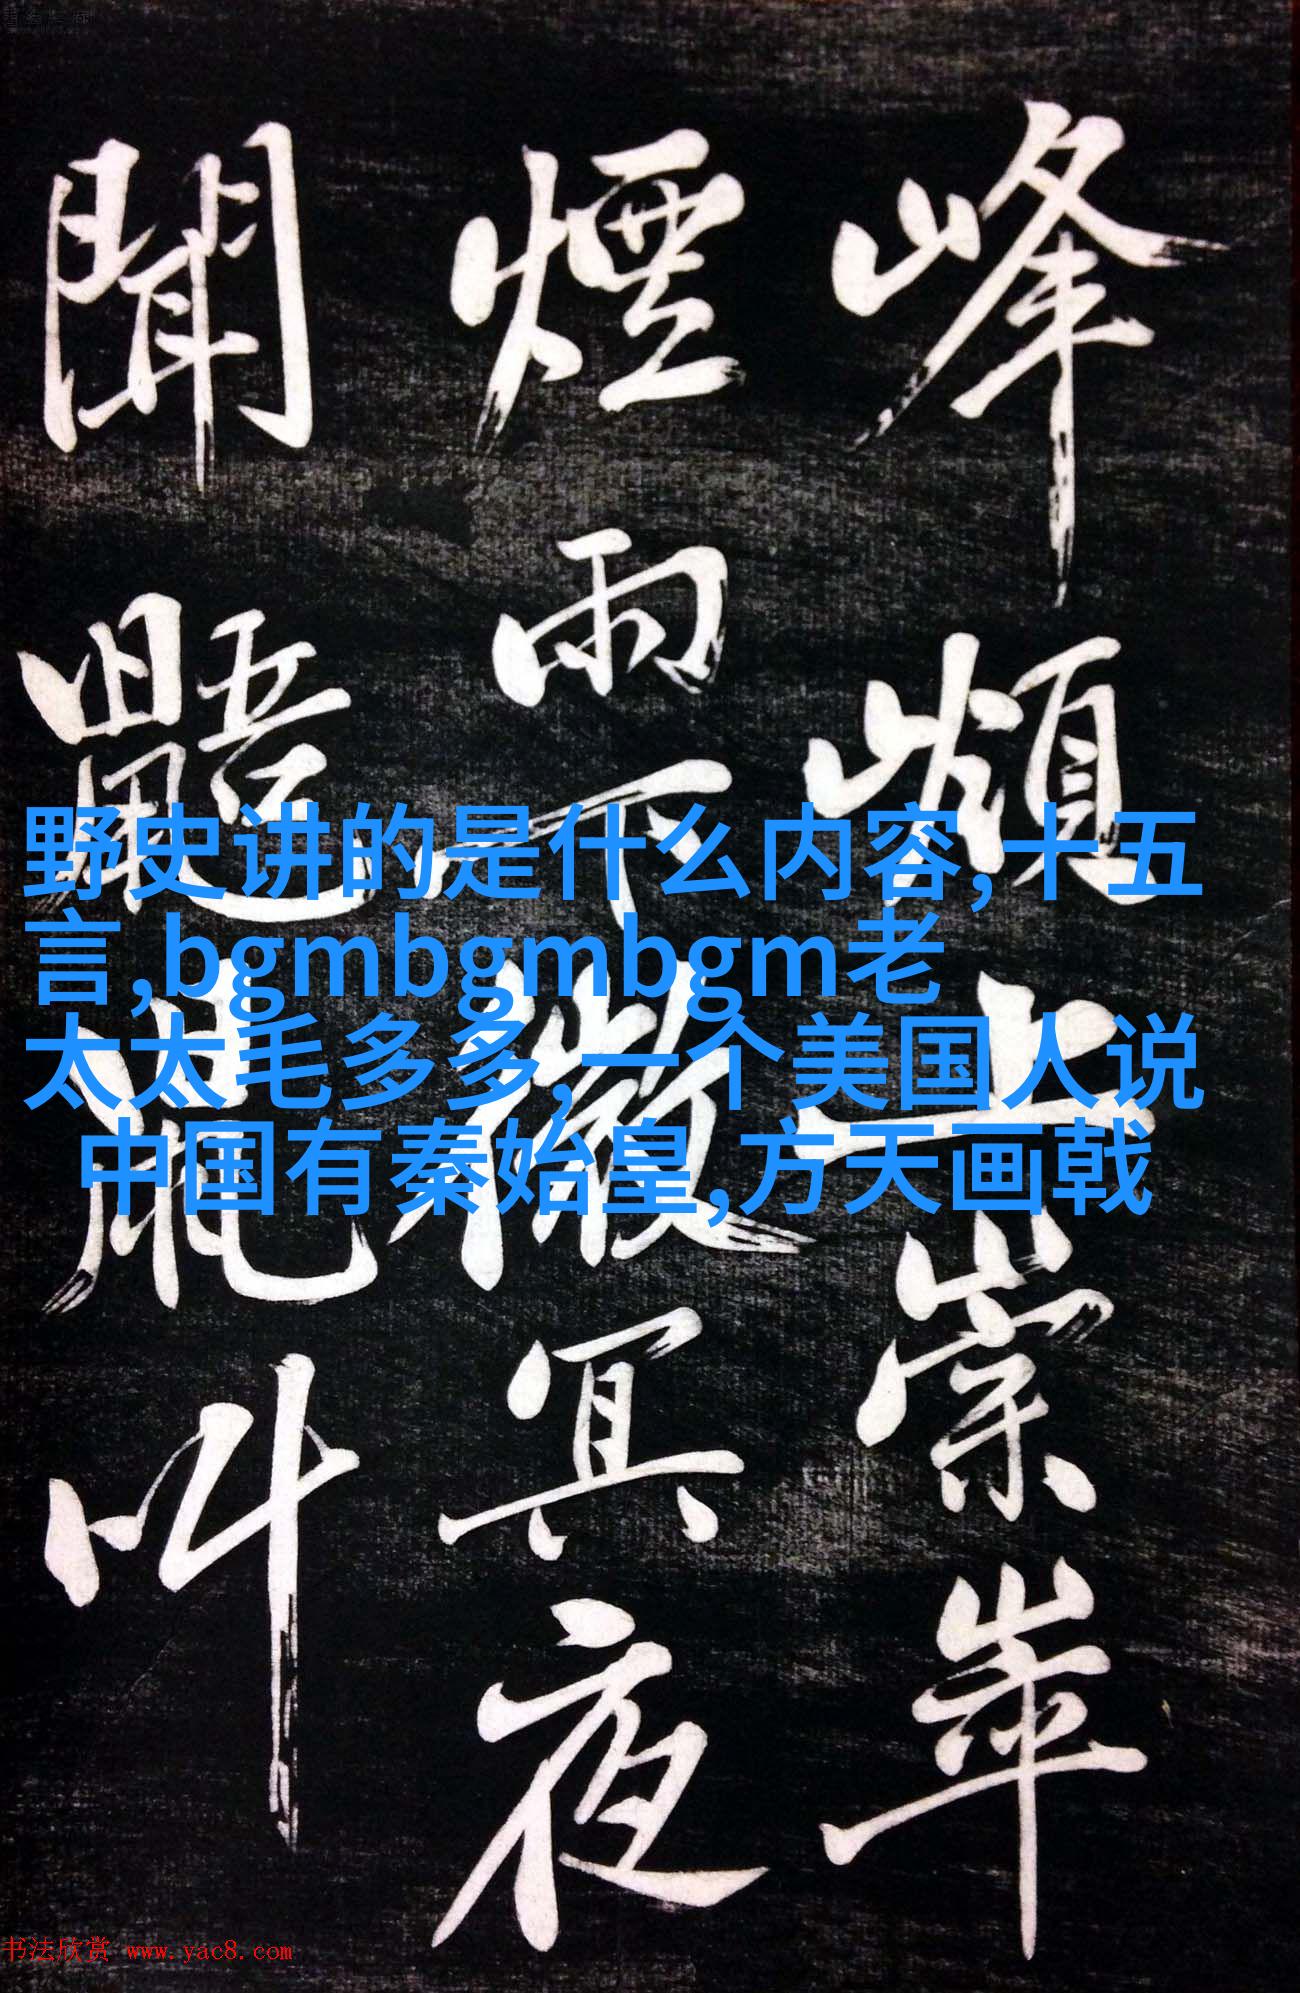 峰上崇崒
煙雨下微冥夜
聞鼯鼠叫
野史讲的是什么内容,十五
言,bgmbgmbgm老
太太毛多多,一个美国人说
中国有秦始皇,方天画戟
书法欣赏 www.yac8.com